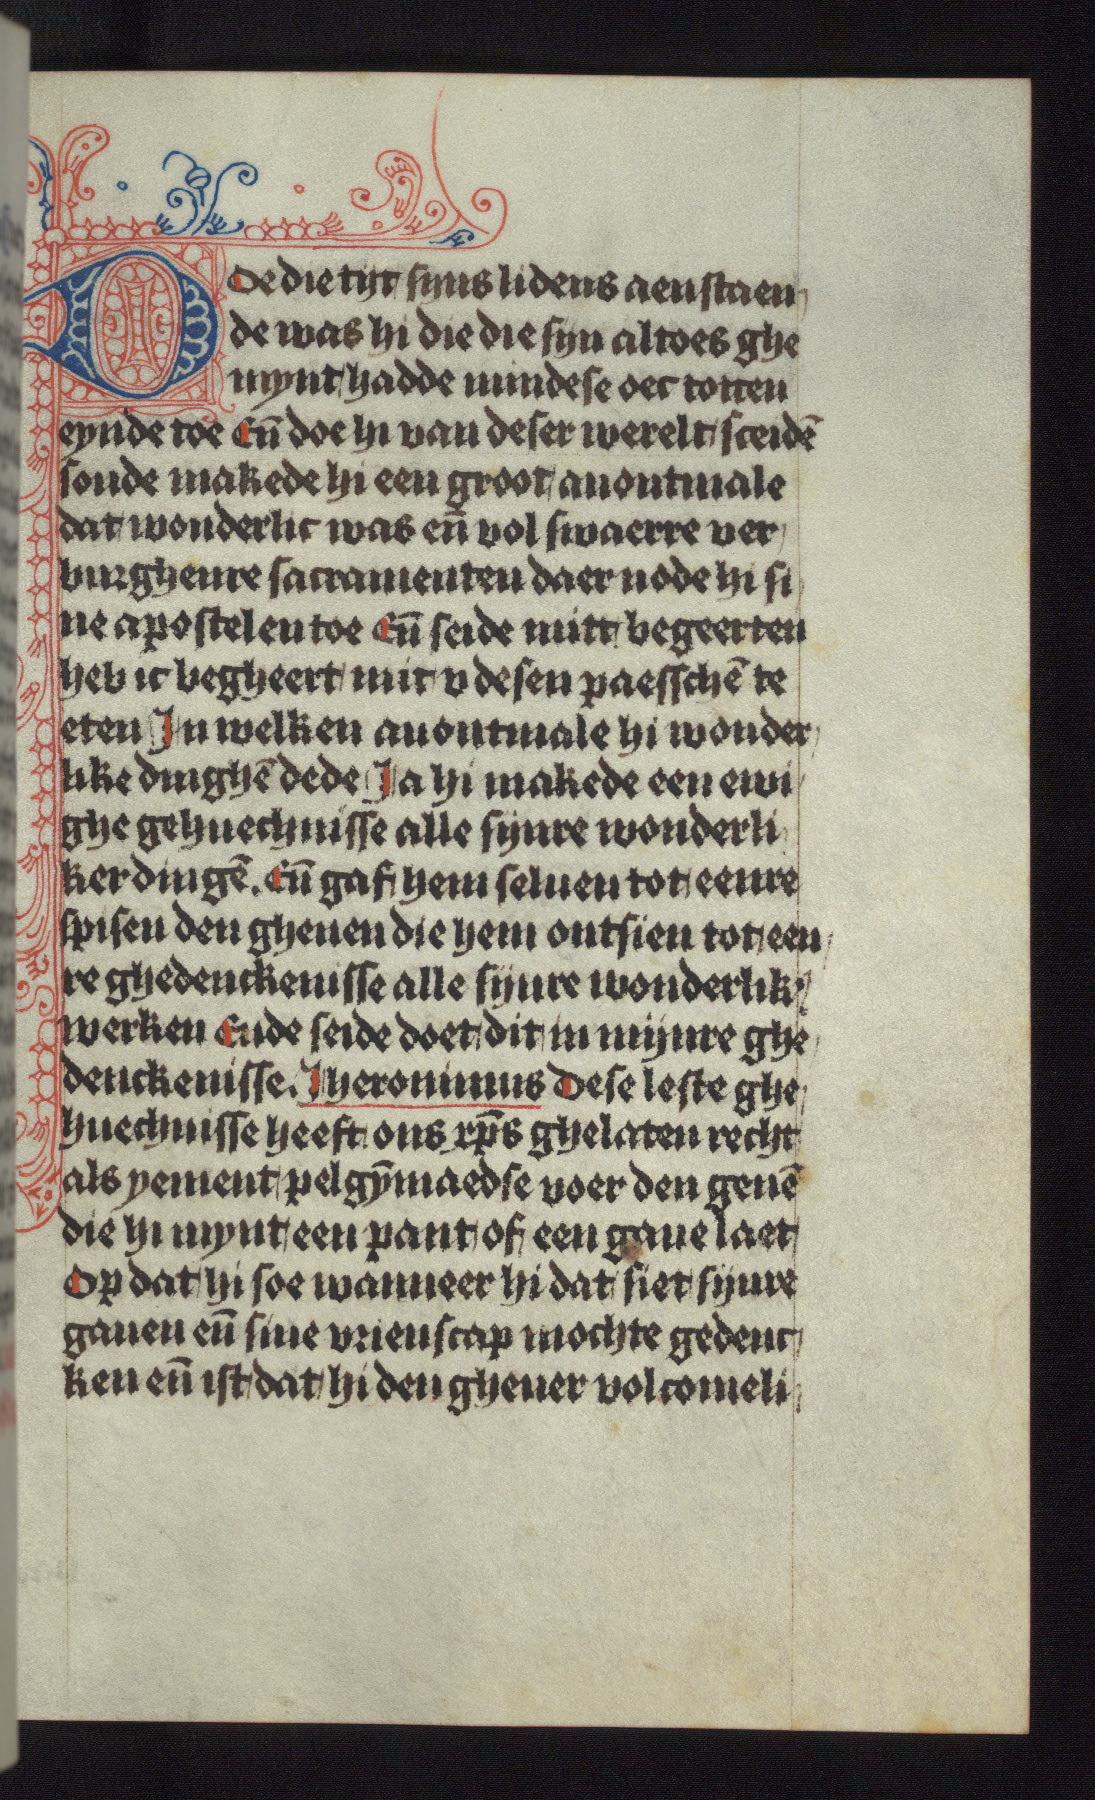 DOe die tijt sijns lidens aenstaen
de was hi die die sijn altoes ghe
mynt hadde mindese oec totten
eynde toe Eñ doe hi van deser werelt sceidē
soude makede hi een groot auontmale
dat wonderlic was eñ vol swaerre ver
burghenre sacramenten daer node hi si
ne apostelen toe Eñ seide mitt begeerten
heb ic begheert mit v desen paesschē te
eten In welken auontmale hi wonder
like dinghē dede Ja hi makede een ewi
ghe gehuechnisse alle sijnre wonderli
ker dingē. Eñ gaf hem seluen tot eenre
spisen den ghenen die hem ontsien tot een
re ghedenckenisse alle sijnre wonderlik
werken Ende seide doet dit in mijnre ghe
denckenisse. Jheronimus Dese leste ghe
huechnisse heeft ons xp̄s ghelaten recht
als yement pelgȳmaedse voer den genē
die hi mynt een pant of een gaue laet
Op dat hi soe wanneer hi dat siet sijnre
gauen eñ sine vrienscap mochte gedenc
ken eñ ist dat hi den gheuer volcomeli